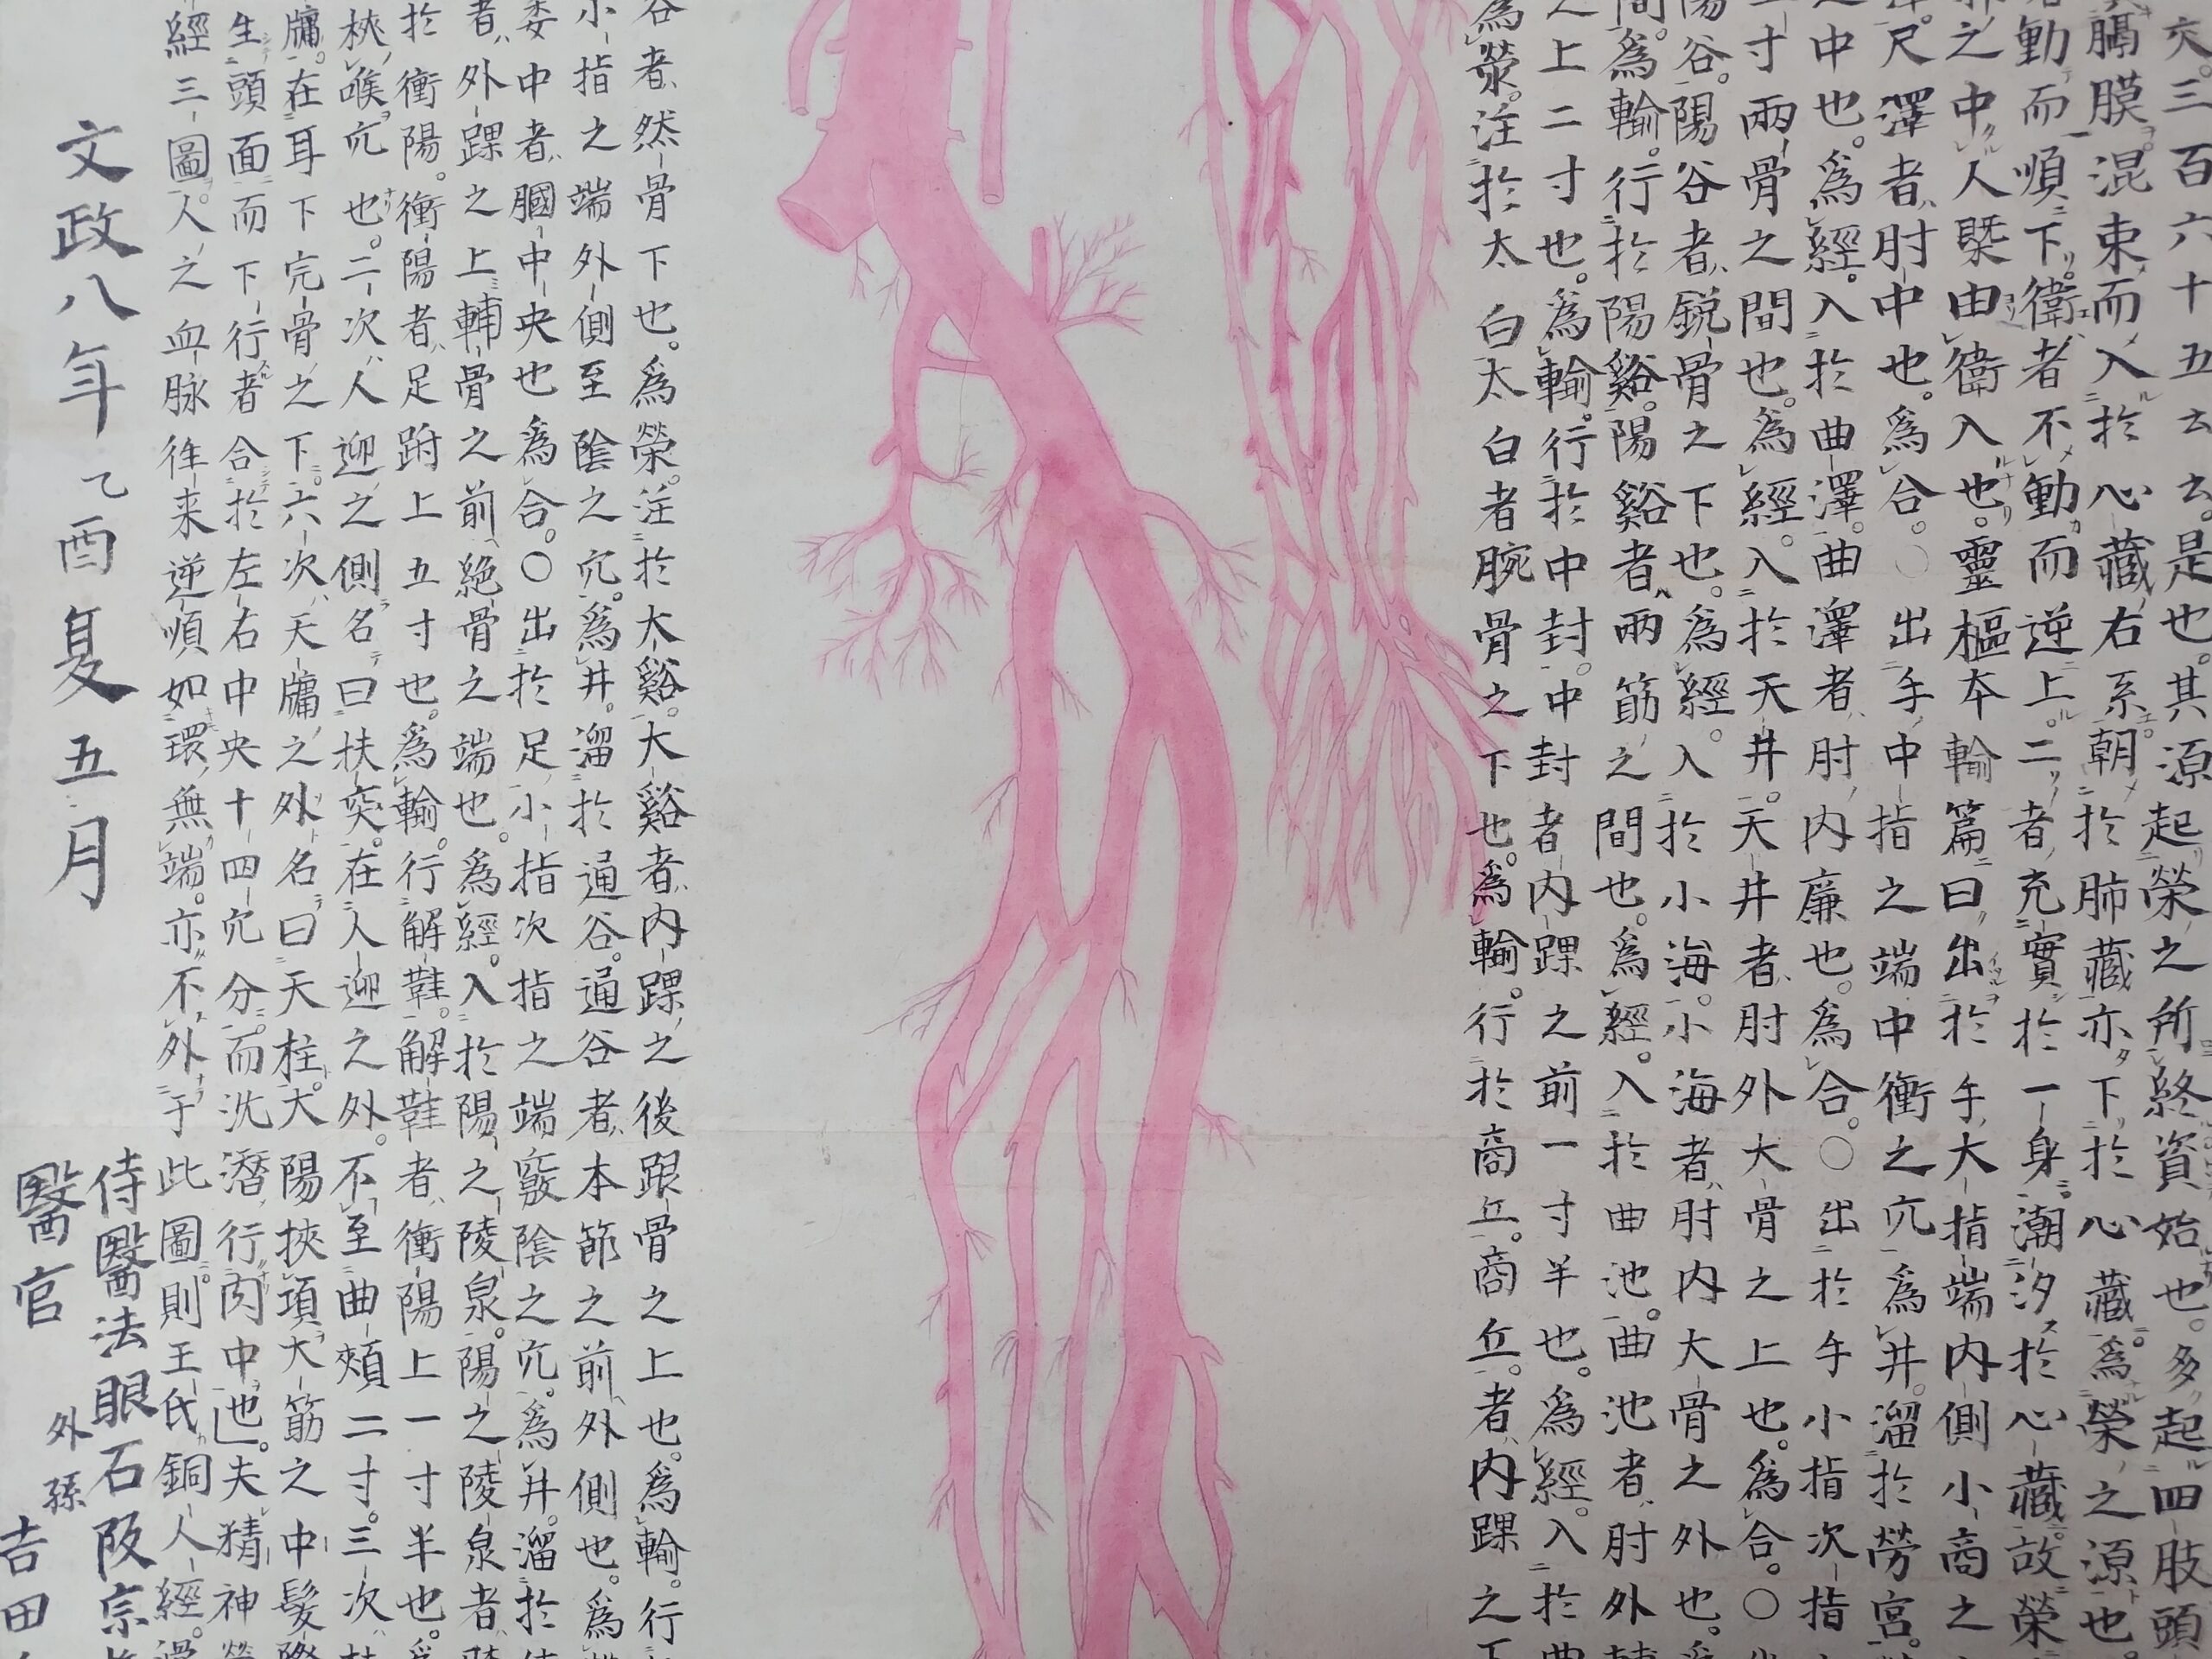 交。三百六十五云云。是也。其源起榮之所終資始也。多起四肢頭
膈膜混束而入於心藏右系朝於肺藏亦下於心藏為榮之源也
動而順下。衛者不動而逆上。二者充實於一身。潮汐於心藏故榮
之中。人槩由衛入也。靈樞本輸篇曰出於手大指端內側小商之
尺澤者肘中也。為合。○出手中指之端中衝之穴為井。溜於勞宮。
之中也。為經。入於曲澤。曲澤者肘內廉也。為合。○出於手小指次指
一寸兩骨之間也。為經。入於天井。天井者肘外大骨之上也。為合。○
陽谷。陽谷者銳骨之下也。為經。入於小海。小海者肘內大骨之外也。
間。為輸。行於陽谿。陽谿者兩筋之間也。為經。入於曲池。曲池者肘外
之上二寸也。為輸。行於中封。中封者內踝之前一寸半也。為經。入於曲
為滎。注於太白太白者腕骨之下也。為輸。行於商丘。商丘者內踝之下
谷者然骨下也。為榮。注於太谿。大谿者內踝之後跟骨之上也。為輸。行
小指之端外側至陰之穴。為井。溜於通谷。通谷者本節之前外側也。為
委中者膕中央也為合。○出於足小指次指之端竅陰之穴。為井。溜於
者外踝之上輔骨之前絶骨之端也。為經。入於陽之陵泉。陽之陵泉者
於衝陽。衝陽者足跗上五寸也。為輸。行解鞋。解鞋者衝陽上一寸半也。
梜喉穴也。二次人迎之側名曰扶突。在人迎之外。不至曲頰二寸。三次
牖。在耳下完骨之下。六次天牖之外名曰天柱。大陽挾項大筋之中髮際
生頭面而下行者合於左右中央十四穴分。而沈潛行肉中也。夫精神
經三圖人之血脉徃来逆順如環無端。亦不外于此圖則王氏銅人經。
文政八年乙酉夏五月
侍醫法眼石阪宗
醫官 外孫 吉田